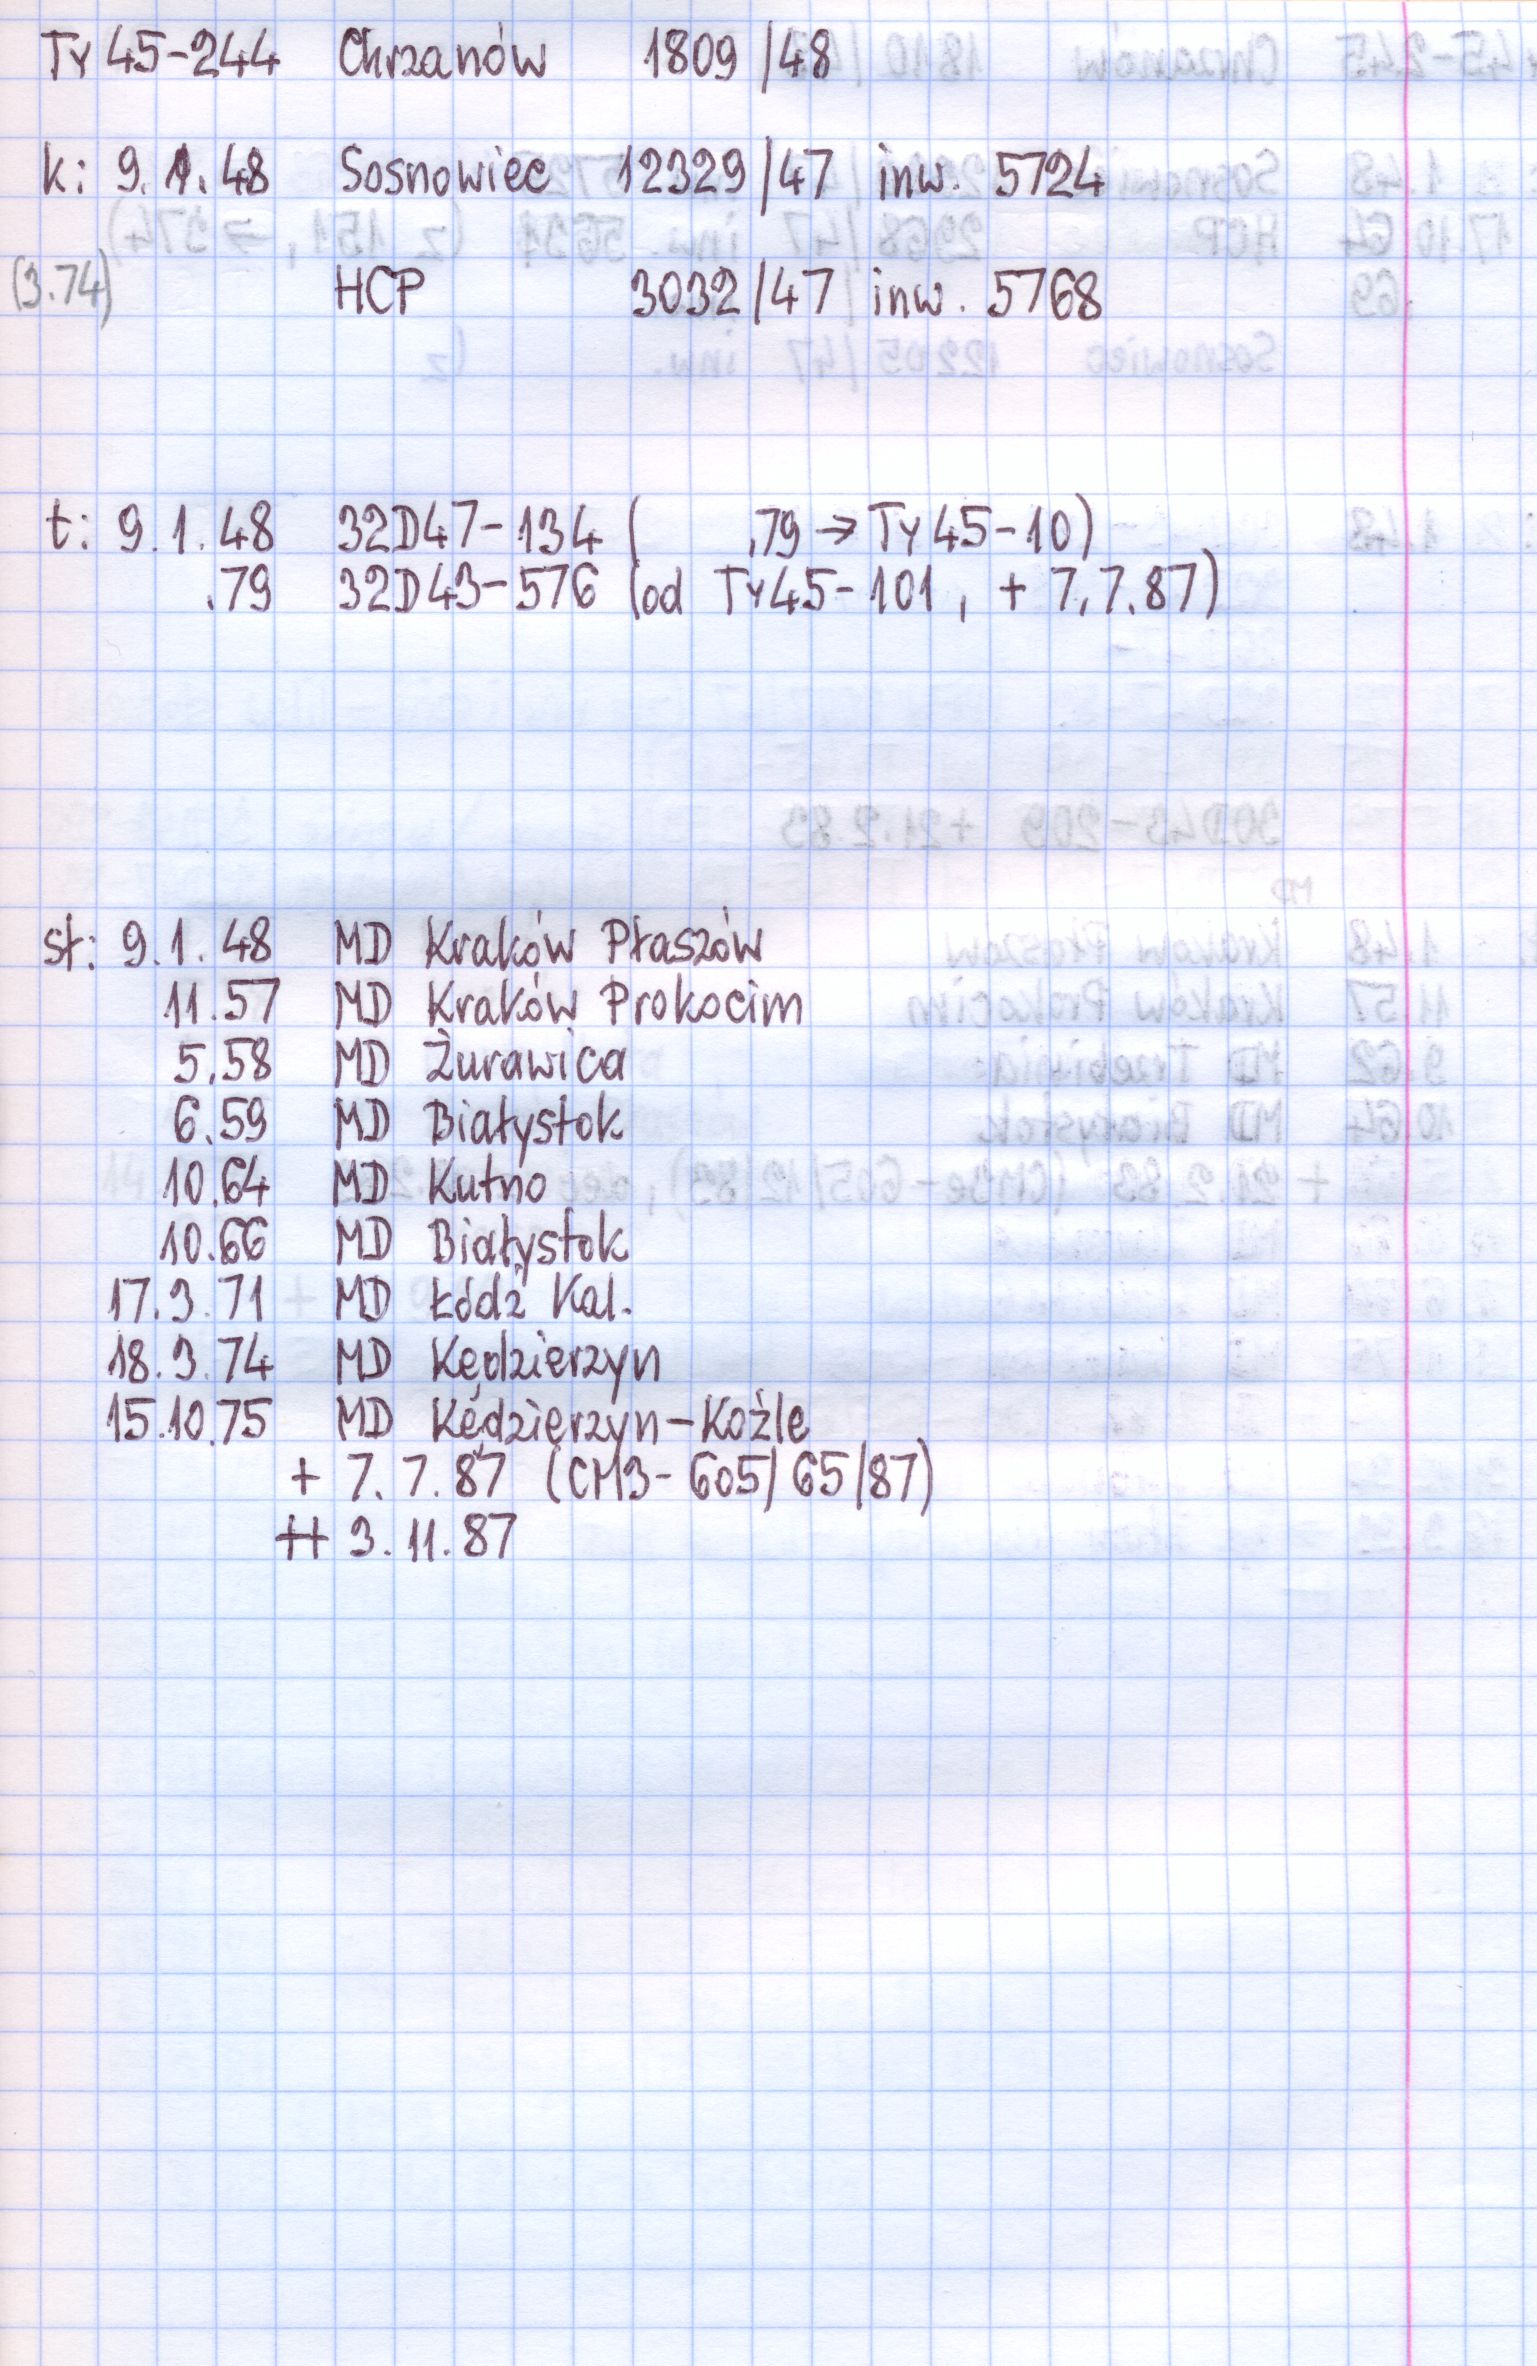 Ty45-244 Chrzanów 1809/48
k: 9.1.48 Sosnowiec 12329/47 inw. 5724
(3.74) HCP 3032/47 inw. 5768
t: 9.1.48 32D47-134 ( .79 → Ty45-10)
.79 32D43-576 (od Ty45-101, + 7.7.87)
st: 9.1.48 MD Kraków Płaszów
11.57 MD Kraków Prokocim
5.58 MD Żurawica
6.59 MD Białystok
10.64 MD Kutno
10.66 MD Białystok
17.3.71 MD Łódź Kal.
18.3.74 MD Kędzierzyn
15.10.75 MD Kędzierzyn-Koźle
+ 7.7.87 (CM3-605/65/87)
++ 3.11.87